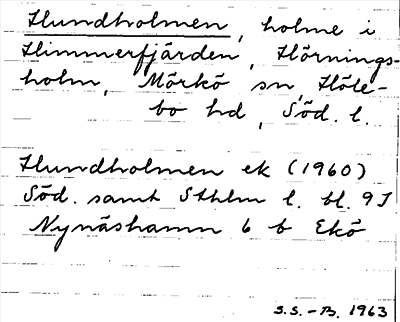 Hundholmen, holme i
Himmerfjärden, Hörnings-
holm, Mörkö sn, Höle-
bo hd, Söd. l.
Hundholmen ek (1960)
Söd. samt Sthlm l. bl. 9 I
Nynäshamn 6 b Ekö
S.S. - B. 1963